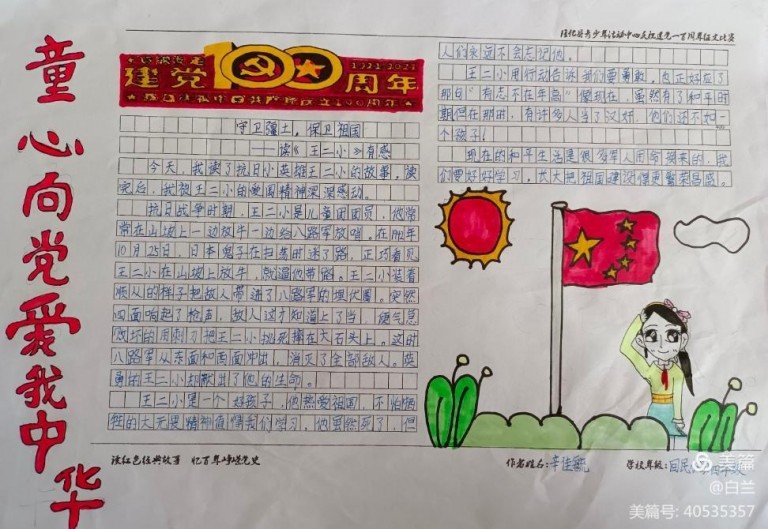 童心向党 爱我中华
庆祝建党一百周年征文比赛
1921-2021
建党100周年
守卫疆土，保卫祖国
——读《王二小》有感
今天，我读了抗日小英雄王二小的故事，读
完后，我被王二小的爱国精神深深感动。
抗日战争时期，王二小是儿童团团员，他常
常在山坡上一边放牛一边给八路军放哨。在1942年
10月25日，日本鬼子在扫荡时迷了路，正巧看见
王二小在山坡上放牛，就逼他带路。王二小装着
顺从的样子把敌人带进了八路军的埋伏圈。突然
四面响起了枪声，敌人这才知道上了当，便气急
败坏的用刺刀把王二小挑死摔在大石头上。这时
八路军从东面和西面冲出，消灭了全部敌人。英
勇的王二小却献出了他的生命。
王二小是一个好孩子，他热爱祖国，不怕牺
牲的大无畏精神值得我们学习，他虽然死了，但
人们永远不会忘记他。
王二小用行动告诉我们要勇敢，也正好应了
那句“有志不在年高”像现在，虽然有了和平时
期但在那时，有许多人当了汉奸，他们还不如一
个孩子！
现在的和平生活是很多军人用命换来的，我
们要好好学习，长大把祖国建设得更繁荣昌盛。
读红色经典故事 忆百年峥嵘党史
作者姓名：辛佳毓
学校年级：回民
美篇
@白兰
美篇号: 40535357